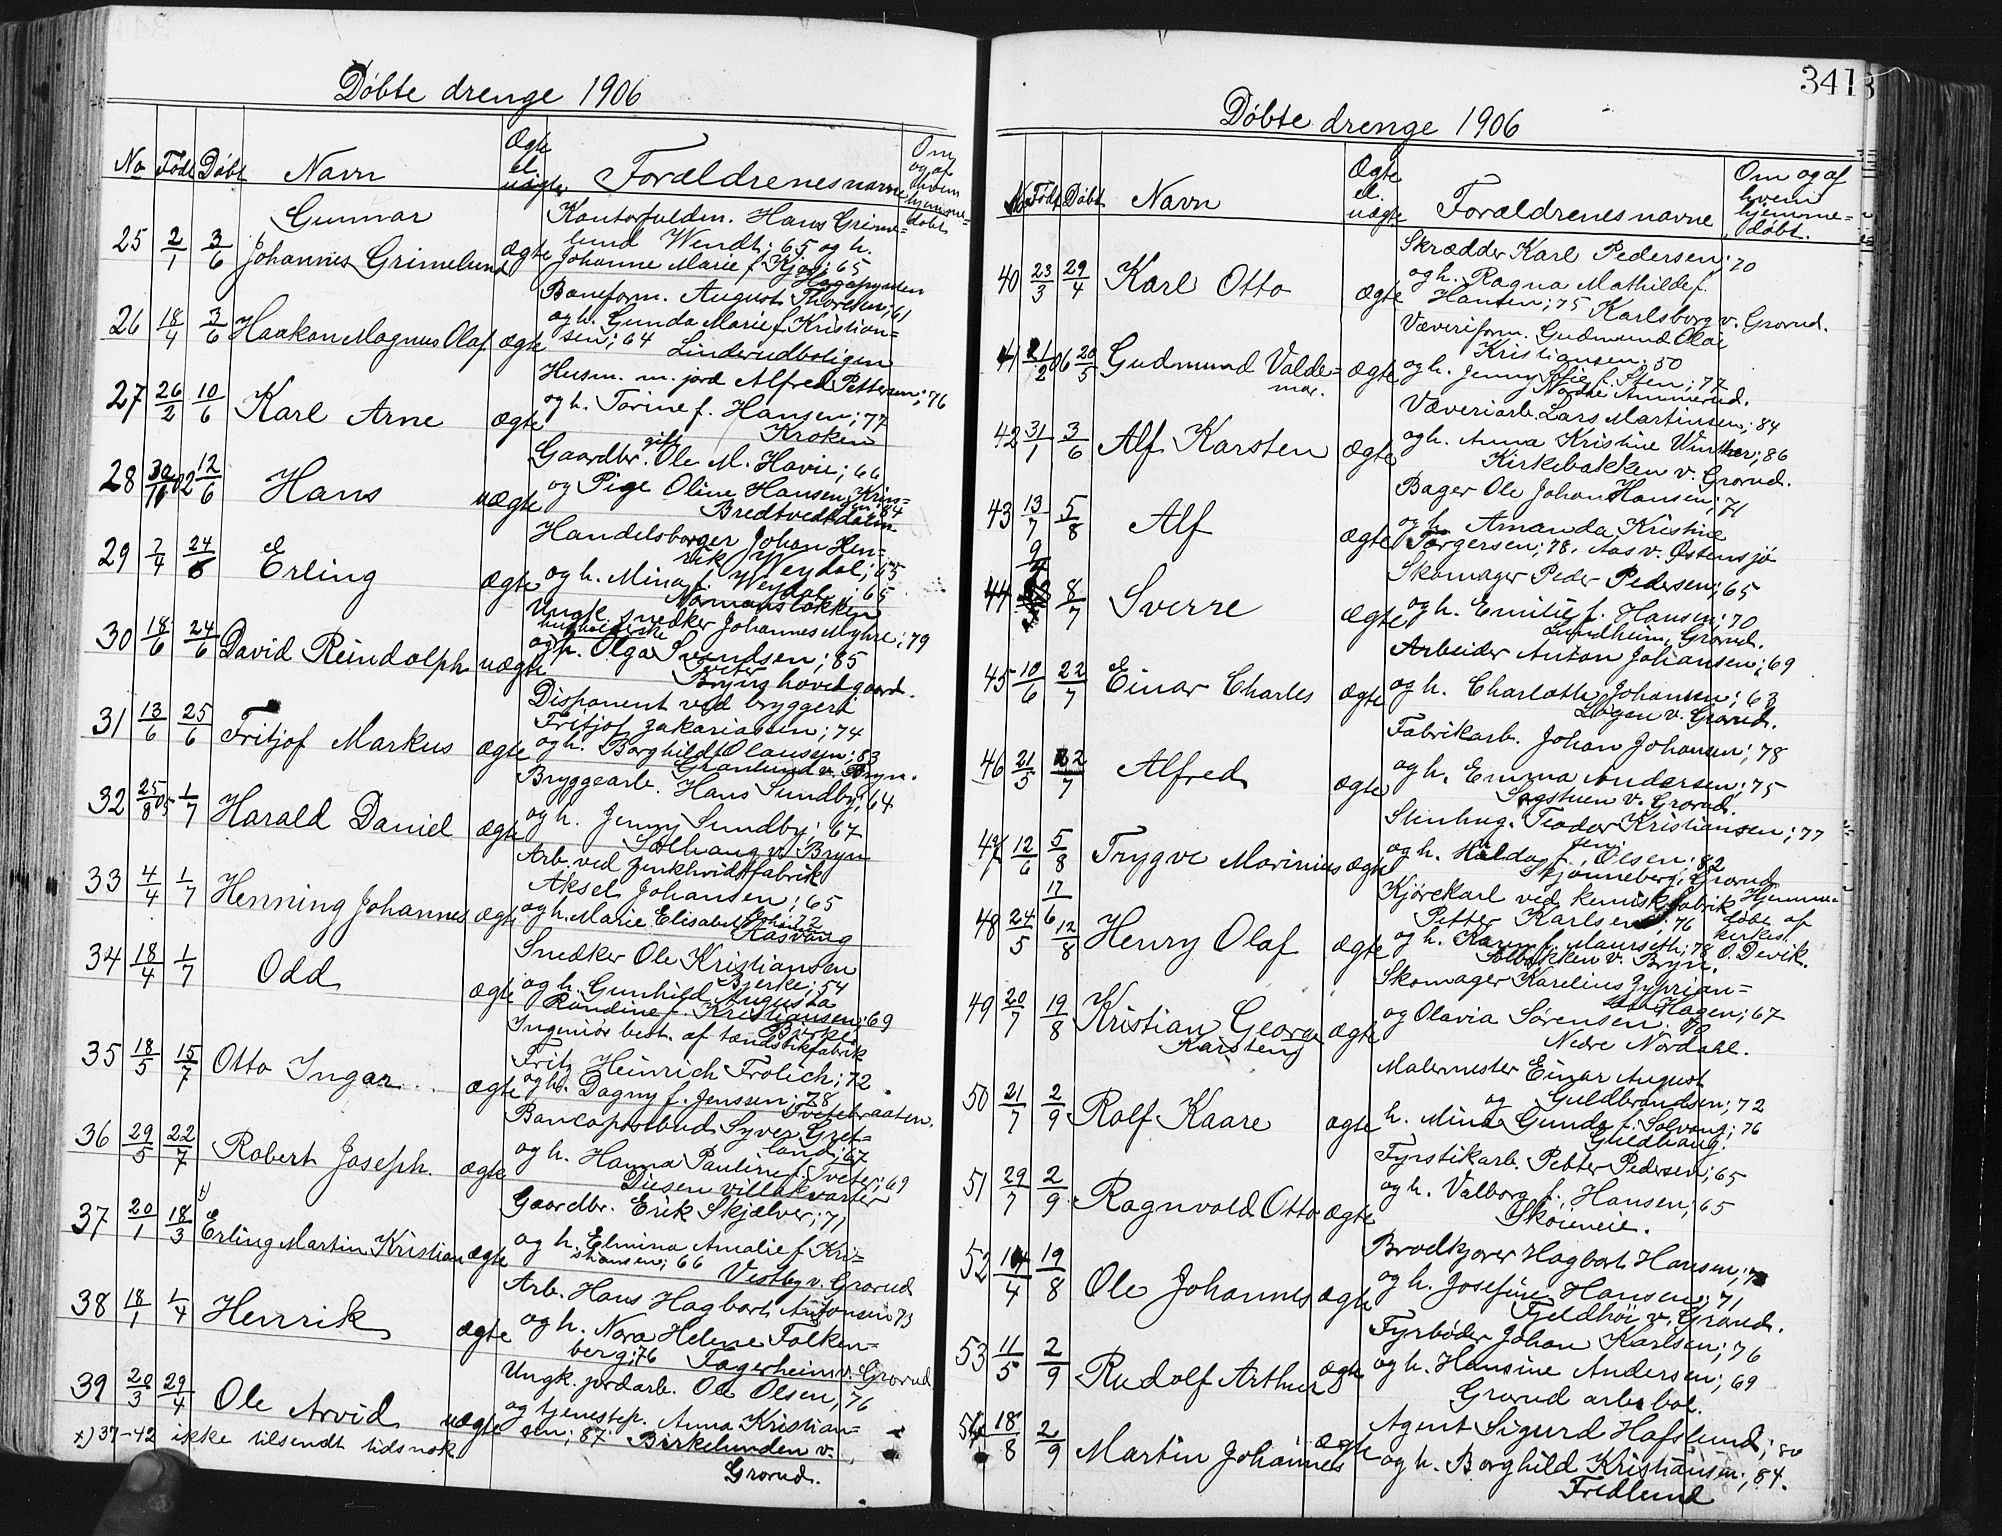 Døbte drenge 1906
No Født Døbt Navn Ægte el. uægte Forældrenes navne Om og af hvem hjemme=døbt
25 2/1 3/6 Gunnar Johannes Grimelund ægte Kontorfuldm. Hans Grime=
lund Wendt; 65 og h.
Johanne Marie f. Kjos; 65
26 18/4 3/6 Haakon Magnus Olaf ægte Baneform. August Thoresen; 61
og h. Gunda Marie f. Kristian=
sen; 64 Linderudboligen
27 26/2 10/6 Karl Arne ægte Husm. m. jord Alfred Pettersen; 76
og h. Torine f. Hansen; 77
Kroken
28 12/6 Hans uægte Gaardbr. gift Ole M. Havie; 66
og Pige Oline Hansen
29 7/4 24/6 Erling ægte Handelsborger Johan Hen=
rik Weydal; 65
og h. Mina f. Weydal; 65
Normansløkken
30 18/6 24/6 David Reindolph uægte Ungk. snedker Johannes Myhre; 79
og p. Olga Svendsen; 85
Bryns hovedgaard.
31 13/6 25/6 Fritjof Markus ægte Disponent ved bryggeri
Fritjof Zakariassen; 74
og h. Borghild Olausen; 83
Grønlund v. Bryn.
32 25/8 05 1/7 Harald Daniel ægte Bryggearb. Hans Sundby; 64
og h. Jenny Sundby; 67
Solhaug v. Bryn
33 4/4 1/7 Henning Johannes ægte Arb. ved Zinkhvidtfabrik
Aksel Johansen; 65
og h. Marie Elisabet
Aasvang
34 18/4 1/7 Odd ægte Snedker Ole Kristiansen
Bjerke; 54
og h. Gunhild Augusta
Randine f. Kristiansen; 69
Bjerke
35 18/5 15/7 Otto Ingar ægte Ingeniør best. af tændstikfabrik
Fritz Heinrich Frølich; 72
og h. Dagny f. Jenssen; 78
Tvetebraaten.
36 29/5 22/7 Robert Joseph. ægte Bancopostbud Syver Gret=
land; 67
og h. Hanna Pauline f. Tveter; 69
Diesen villakvarter
37 20/1 18/3 Erling Martin Kristian ægte Gaardbr. Erik Skjælver; 71
og h. Elmina Amalie f. Kri=
stiansen; 66 Vestby v. Grorud
38 18/1 1/4 Henrik ægte Arb. Hans Hagbart Antonsen 73
og h. Nora Helene Falken=
berg; 76 Fagerheim v. Grorud
39 20/3 29/4 Ole Arvid uægte Ungk. jordarb. Ole Olsen, 76
og tjenestep. Anna Kristian=
sen; 87 Birkelunden v.
Grorud.
x) 37-42 ikke tilsendt tidsnok
341
Døbte drenge 1906
No Født Døbt Navn Ægte el. uægte Forældrenes navne Om og af hvem hjemme=døbt.
40 23/3 29/4 Karl Otto ægte Skrædder Karl Pedersen; 70
og h. Ragna Mathilde f.
Hansen; 75 Karlsborg v. Grorud.
41 20/5 Gudmund Valde=
mar. ægte Væveriform. Gudmund Olai
Kristiansen; 50
og h. Jenny Sofie f. Sten; 77
Nordre Ammerud.
42 31/1 3/6 Alf Karsten ægte Væveriarb. Lars Martinsen; 84
og h. Anna Kristine Winther; 86
Kirkebakken v. Grorud.
43 13/7 5/8 Alf ægte Bager Ole Johan Hansen; 71
og h. Amanda Kristine
Torgersen; 78. Aas v. Østensjø
44 8/7 Sverre ægte Skomager Peder Pedersen; 65
og h. Emilie f. Hansen; 70
Lundheim, Grorud.
45 10/6 22/7 Einar Charles ægte Arbeider Anton Johansen; 69
og h. Charlotte Johansen; 63
Løgen v. Grorud.
46 21/5 22/7 Alfred ægte Fabrikarb. Johan Johansen; 78
og h. Emma Andersen; 75
Sagstuen v. Grorud.
47 12/6 5/8 Trygve Marinius ægte Stenhug. Teodor Kristiansen; 77
og h. Hilda Olsen; 82
Skjønneberg, Grorud
48 24/5 17/6 12/8 Henry Olaf ægte Kjørekarl ved kemisk fabrik
Petter Karlsen; 76
og h. Karen f. Maurseth; 78
v. Bryn.
Hjemme=
døbt af
kirkes.
O. Devik.
49 20/7 19/8 Kristian Georg
Karsten ægte Skomager Karelius Zyprian=
Hagen; 67
og Olavia Sørensen; 70
Nedre Nordahl.
50 21/7 2/9 Rolf Kaare ægte Malermester Einar August
Guldbrandsen; 72
og h. Mina Gunda f. Solvang; 76
Guldhaug.
51 29/7 2/9 Ragnvald Otto ægte Fyrstikarb. Petter Pedersen; 65
og h. Valborg f. Hansen; 65
Skøieneie.
52 14/4 19/8 Ole Johannes ægte Brødkjører Hagbart Hansen;
og h. Josefine Hansen; 71
Fjeldhøi v. Grorud.
53 11/5 2/9 Rudolf Arthur ægte Fyrbøder Johan Karlsen; 76
og h. Hansine Andersen; 69
Grorud arb. bol.
54 18/8 2/9 Martin Johannes ægte Agent Sigurd Hafslund; 80
og h. Borghild Kristiansen; 84.
Fredlund